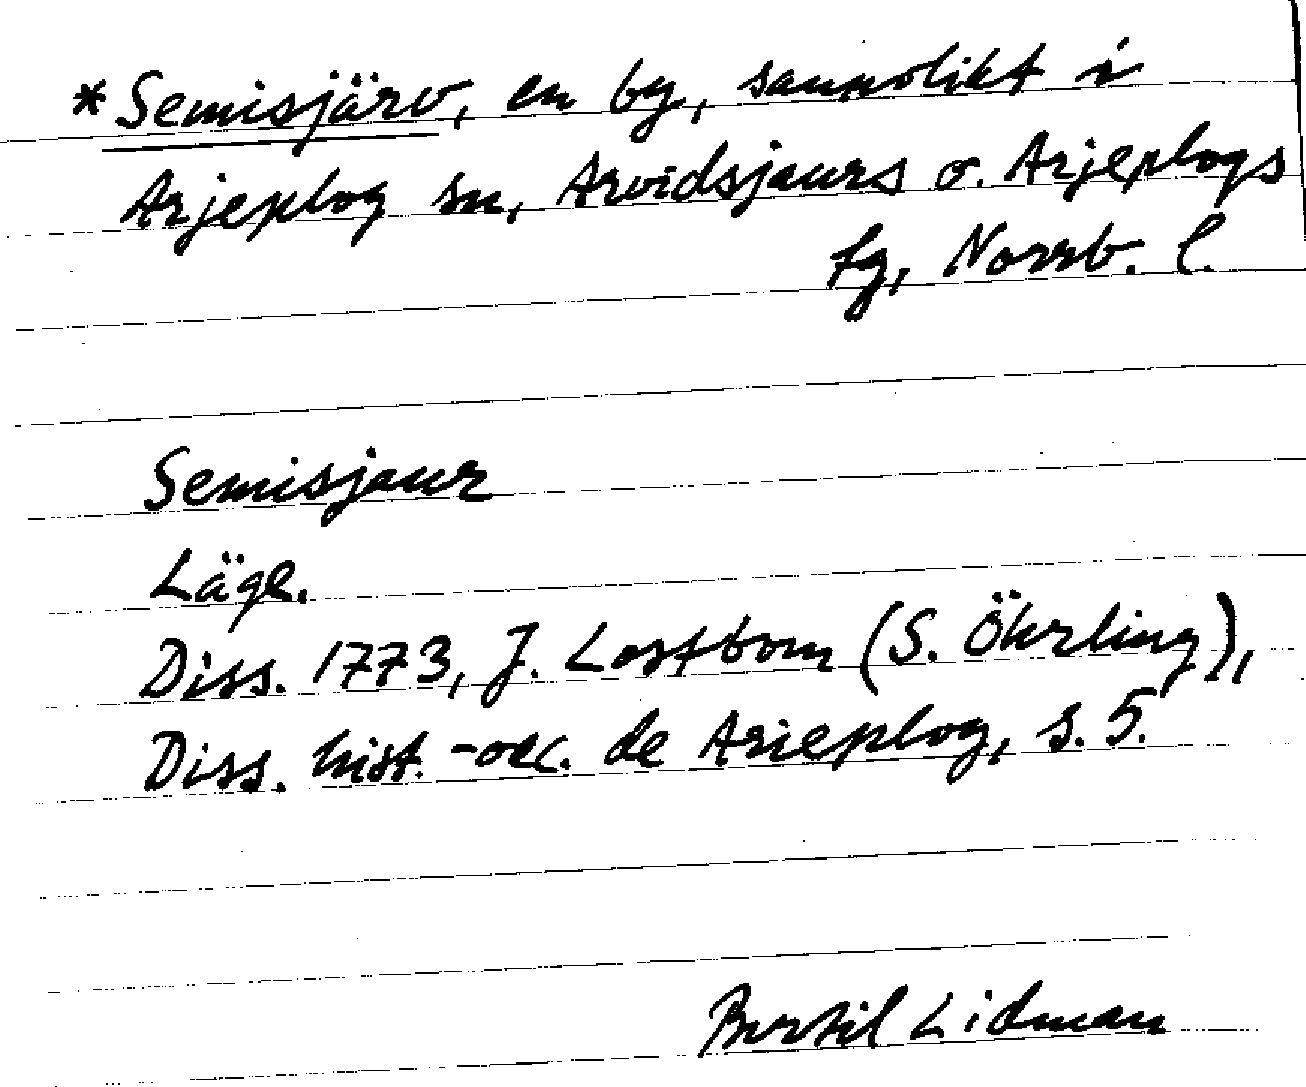 *Semisjärv, en by, sannolikt i
Arjeplog sn, Arvidsjaurs o. Arjeplogs
tg, Norrb. l.
Semisjaur
Läge.
Diss. 1773, J. Lostbom (S. Öhrling),
Diss. hist.-oec. de Arieplog, s. 5.
Bertil Lidman